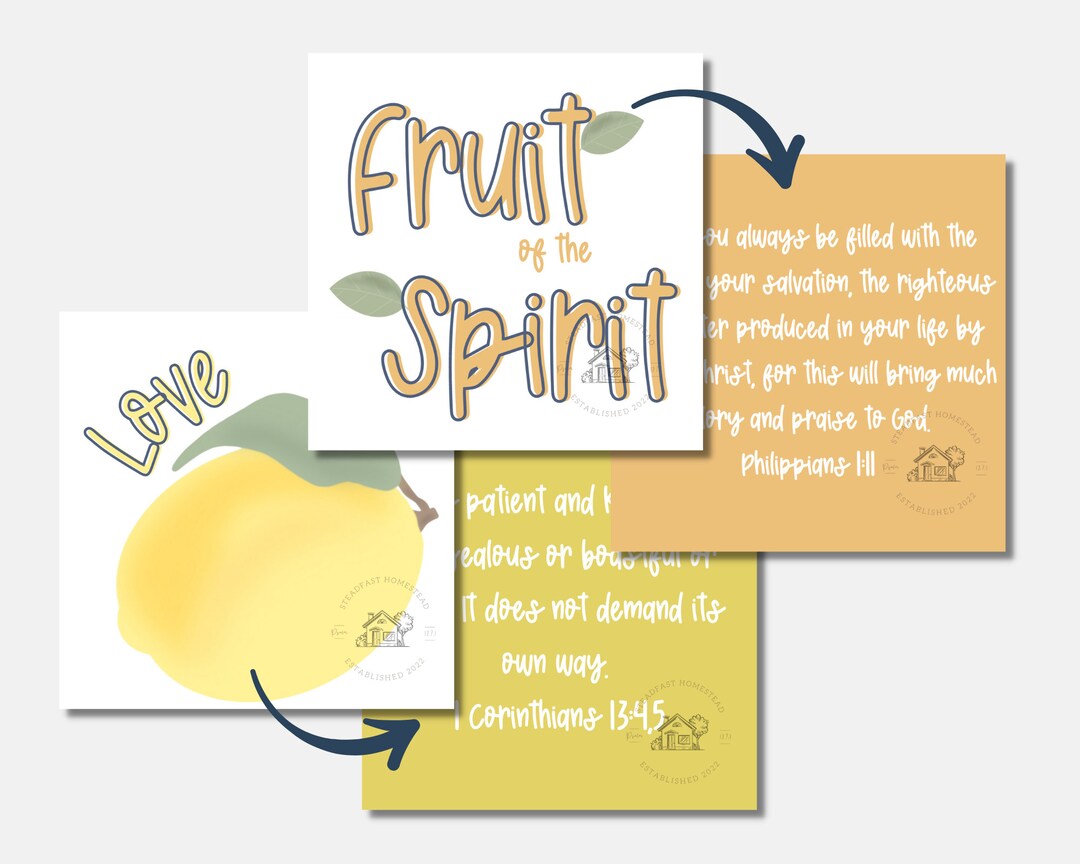 Fruit
of the
Spirit
ou always be filled with the
your salvation, the righteous
ter produced in your life by
hrist, for this will bring much
ory and praise to God.
Philippians 1:11
Love
patient and k
ealous or boastful or
It does not demand its
own way.
1 Corinthians 13:4,5
STEADFAST HOMESTEAD
ESTABLISHED 2022
STEADFAST HOMESTEAD
ESTABLISHED 2022
STEADFAST HOMESTEAD
ESTABLISHED 2022
HOMESTEAD
ESTABLISHED 2022